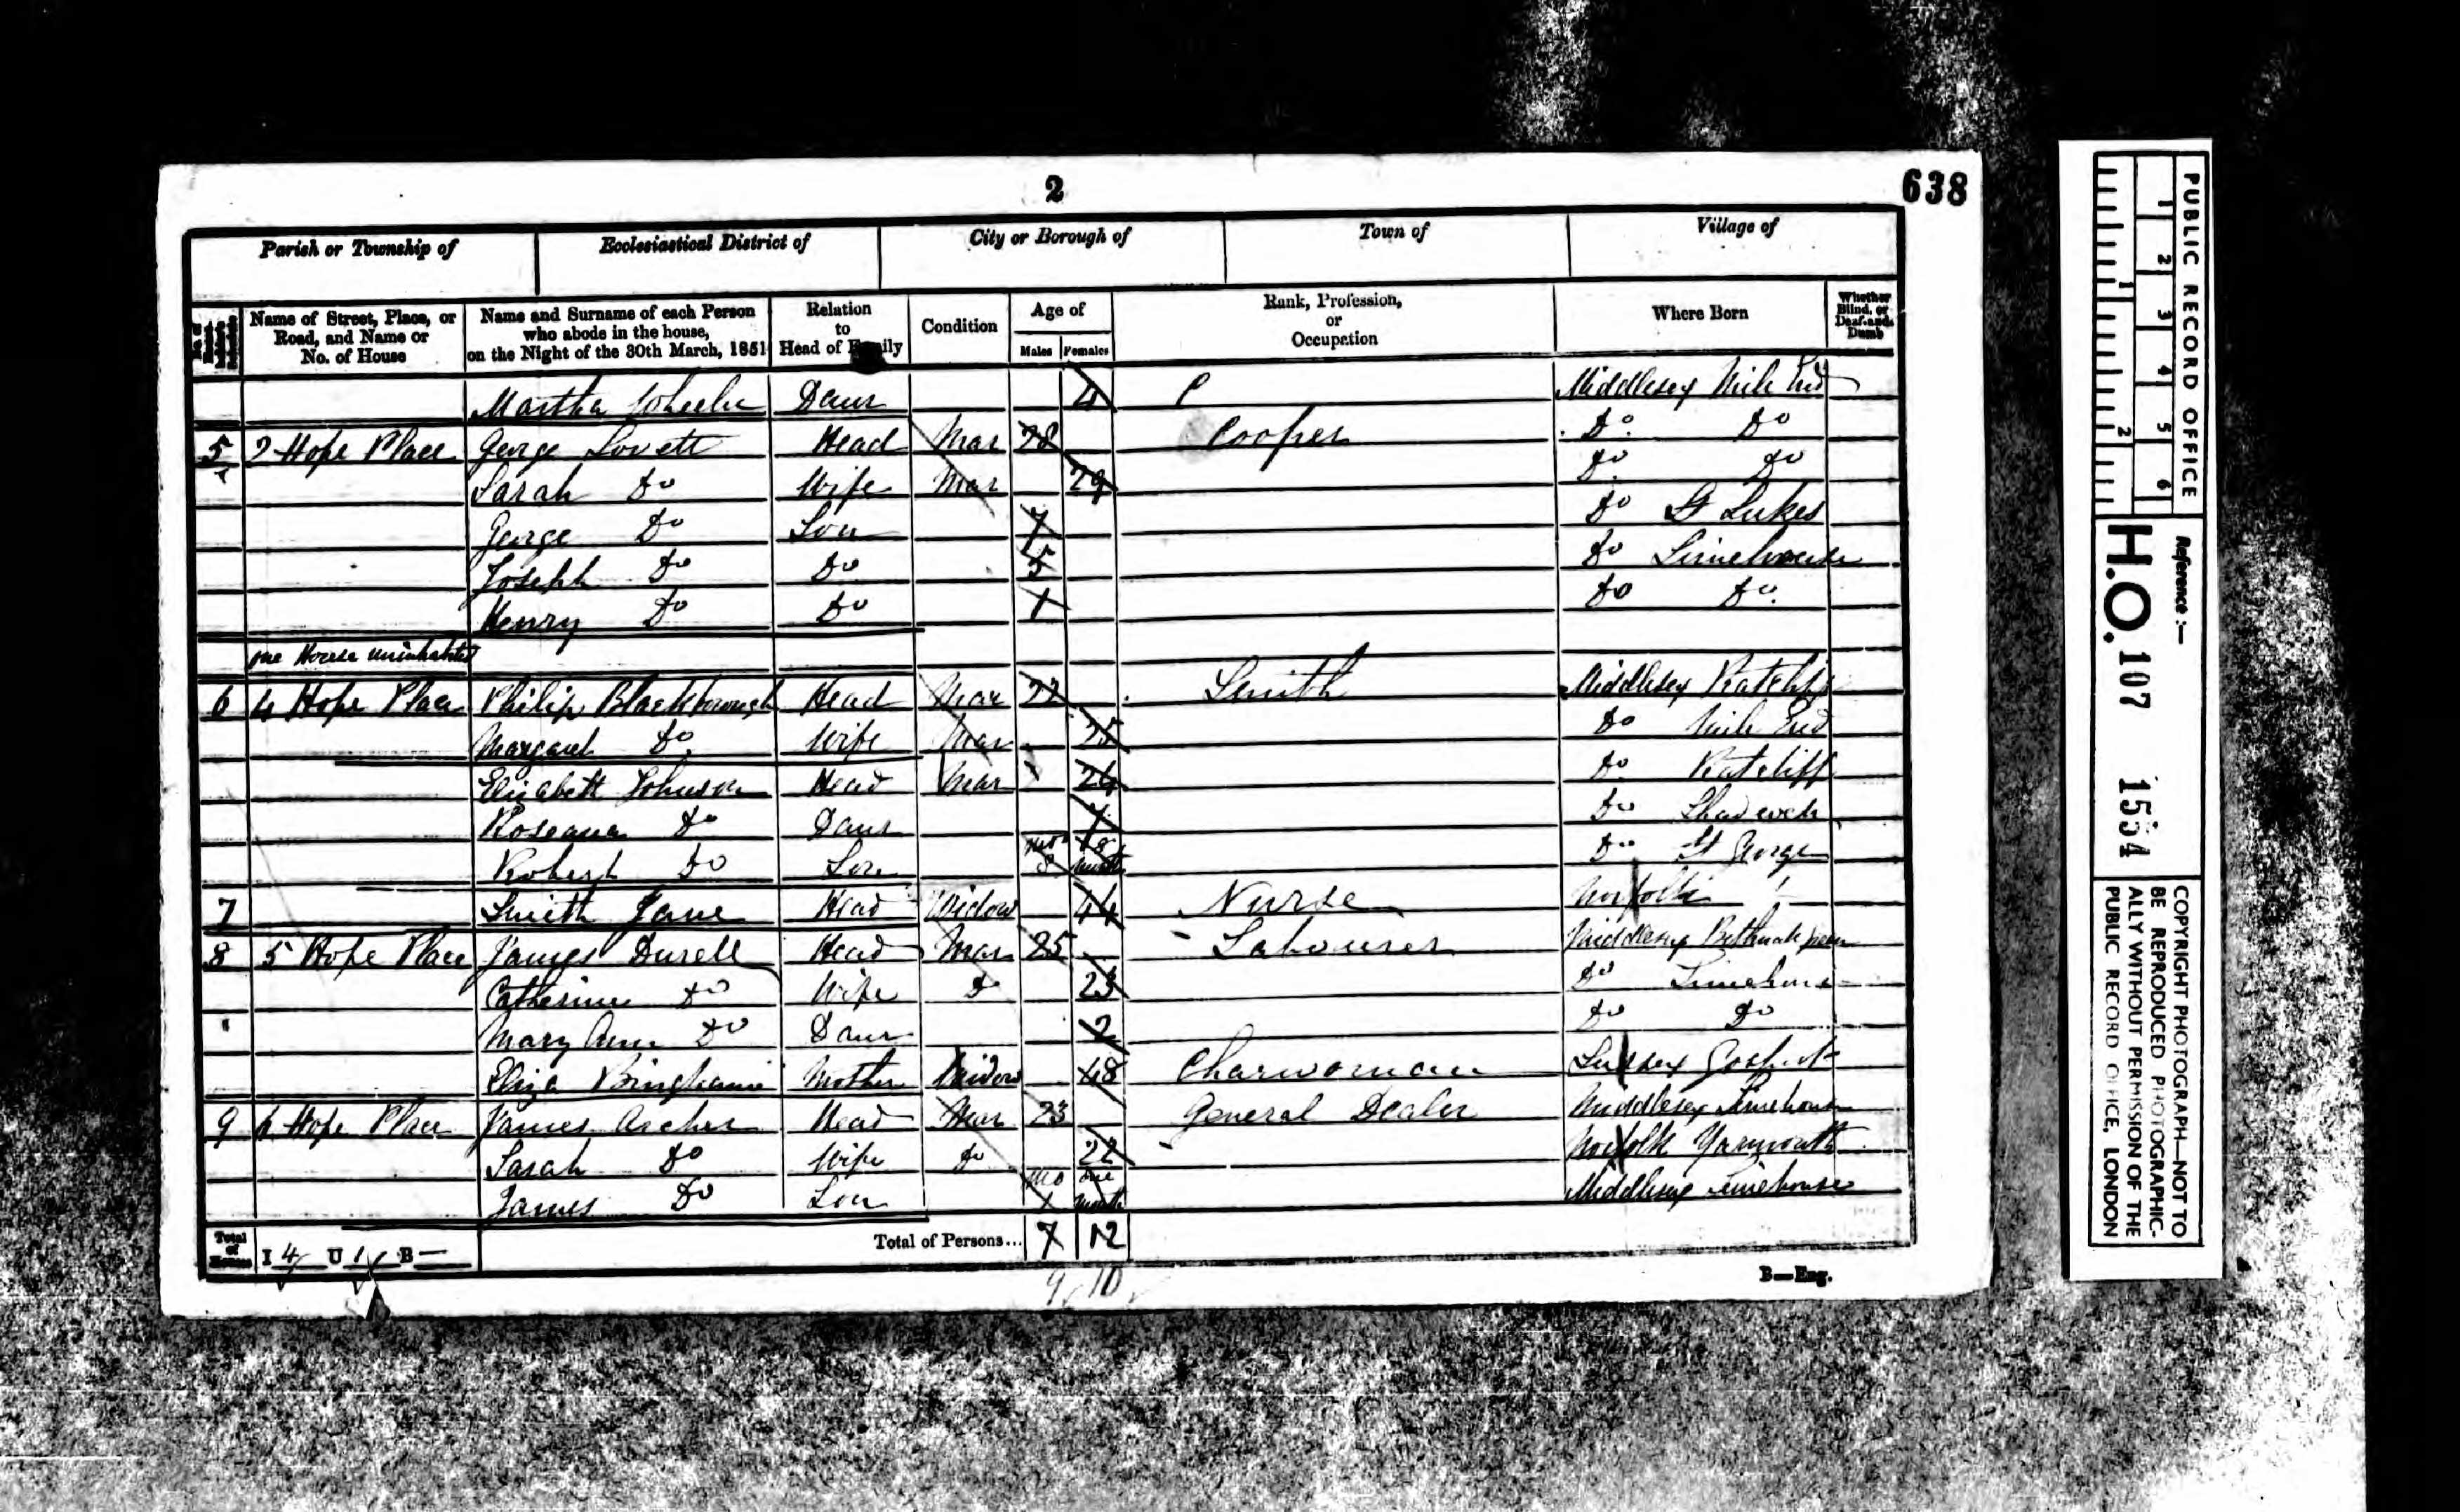 2
638
Parish or Township of Ecclesiastical District of City or Borough of Town of Village of
Name of Street, Place, or Road, and Name or No. of House
Name and Surname of each Person who abode in the house, on the Night of the 30th March, 1851
Relation to Head of Family
Condition
Age of
Males Females
Rank, Profession, or Occupation
Where Born
Whether Blind, or Deaf-and-Dumb
Martha Wheeler Daur 4 Middlesex Mile End
5 2 Hope Place George Lovett Head Mar 28 Cooper Do. Do
Sarah Do Wife Mar 29 Do. Do
George Do Son 7 Do St Lukes
Joseph Do Do 5 Do Limehouse
Henry Do Do 1 Do Do.
one House uninhabited
6 4 Hope Place Philip Blackborough Head Mar 22 Smith Middlesex Ratcliff
Margaret Do. Wife Mar 25 Do Mile End
Elizabeth Johnson Head Mar 24 Do Ratcliff
Roseana Do Daur Do Shadwell
Robert Do Son Mo 8 Month Do St George
7 Smith Jane Head Widow 44 Nurse Norfolk
8 5 Hope Place James Durell Head Mar 25 Labourer Middlesex Bethnal Green
Catherine Do Wife Do 23 Do Limehouse
" Mary Ann Do Daur 2 Do Do
Eliza Bingham Mother Widow 48 Charwoman Sussex Gosport
9 6 Hope Place James Archer Head Mar 23 General Dealer Middlesex Limehouse
Sarah Do Wife Do 22 Norfolk Yarmouth
James Do Son Mo 1 one Month Middlesex Limehouse
Total of Houses I 4 U 1 B — Total of Persons... 7 12
9 10
B—Eng.
PUBLIC RECORD OFFICE
1 2 3 4 5 6
1 2
Reference :—
H.O. 107 1554
COPYRIGHT PHOTOGRAPH—NOT TO
BE REPRODUCED PHOTOGRAPHIC-
ALLY WITHOUT PERMISSION OF THE
PUBLIC RECORD OFFICE, LONDON